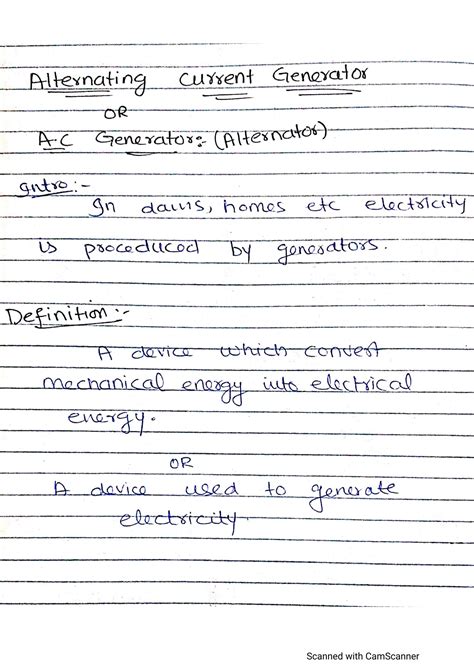 Alternating Current Generator
OR
A.C Generator:- (Alternator)
Intro:-
In dams, homes etc electricity
is proceduced by generators.
Definition:-
A device which convert
mechanical energy into electrical
energy.
OR
A device used to generate
electricity.
Scanned with CamScanner